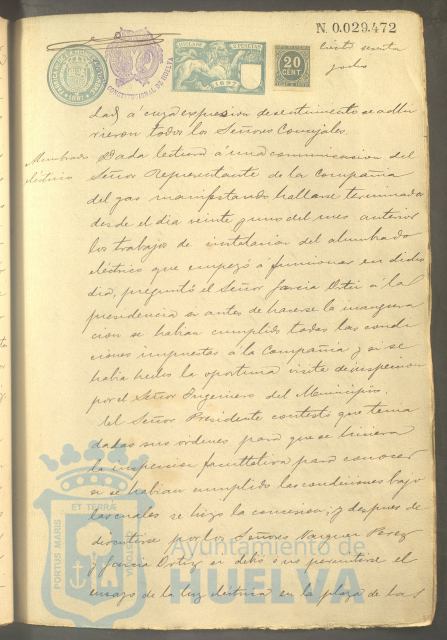 N. 0.029.472
ciento sesenta
y ocho
1897
20
CENT.
CONSTITUCIONAL DE HUELVA
dad, a cuya expresion de sentimiento se adhi
rieron todos los Señores Concejales.
Alumbrado
eléctrico
Dada lectura á una comunicacion del
Señor Representante de la Compañia
del gas manifestando hallarse terminados
desde el dia veinte y uno del mes anterior
los trabajos de instalacion del alumbrado
eléctrico que empezó á funcionar en dicho
dia, preguntó el Señor Garcia Ortiz á la
presidencia si antes de hacerse la inaugura
cion se habian cumplido todas las condi
ciones impuestas á la Compañia y si se
habia hecho la oportuna visita de inspeccion
por el Señor Ingeniero del Municipio.
El Señor Presidente contestó que tenia
dadas sus ordenes para que se hiciera
la inspeccion facultativa para conocer
si se habian cumplido las condiciones bajo
las cuales se hizo la concesion; y despues de
discutirse por los Señores Vazquez Perez
y Garcia Ortiz si debió ó no permitirse el
ensayo de la luz eléctrica en la plaza de las
PORTUS MARIS
ET TERRÆ
CUSTODIA
Ayuntamiento de
HUELVA